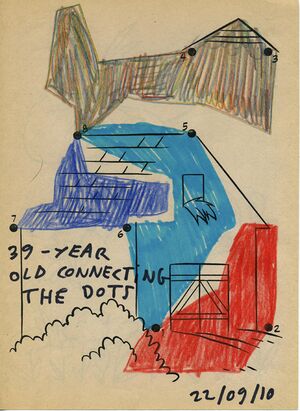 4
3
8
5
7
6
39-YEAR
OLD CONNECTING
THE DOTS
2
22/09/10